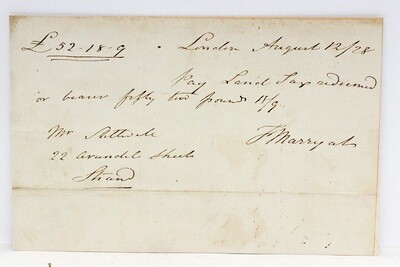 £52-18-9 . London August 12/28
Pay Land Tax redeemed
or bearer fifty two pounds 18/9
Mr Stilwell
22 Arundel Street
Strand
F Marryat